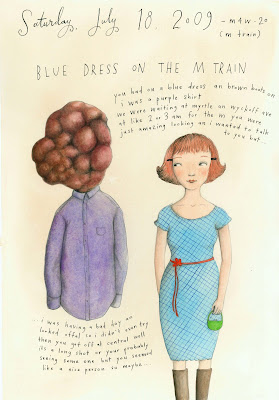 Saturday, July 18, 2009 - m4w - 20
(m train)
BLUE DRESS ON THE M TRAIN
you had on a blue dress an brown boots on
i was a purple shirt
we were waiting at myrtle an wyckoff eve
at like 2 or 3 am for the m you were
just amazing looking an i wanted to talk
to you but
...i was having a bad day an
looked offal so i didn't even try
then you got off at central well
its a long shot or your probably
seeing some one but you seemed
like a nice person so maybe...